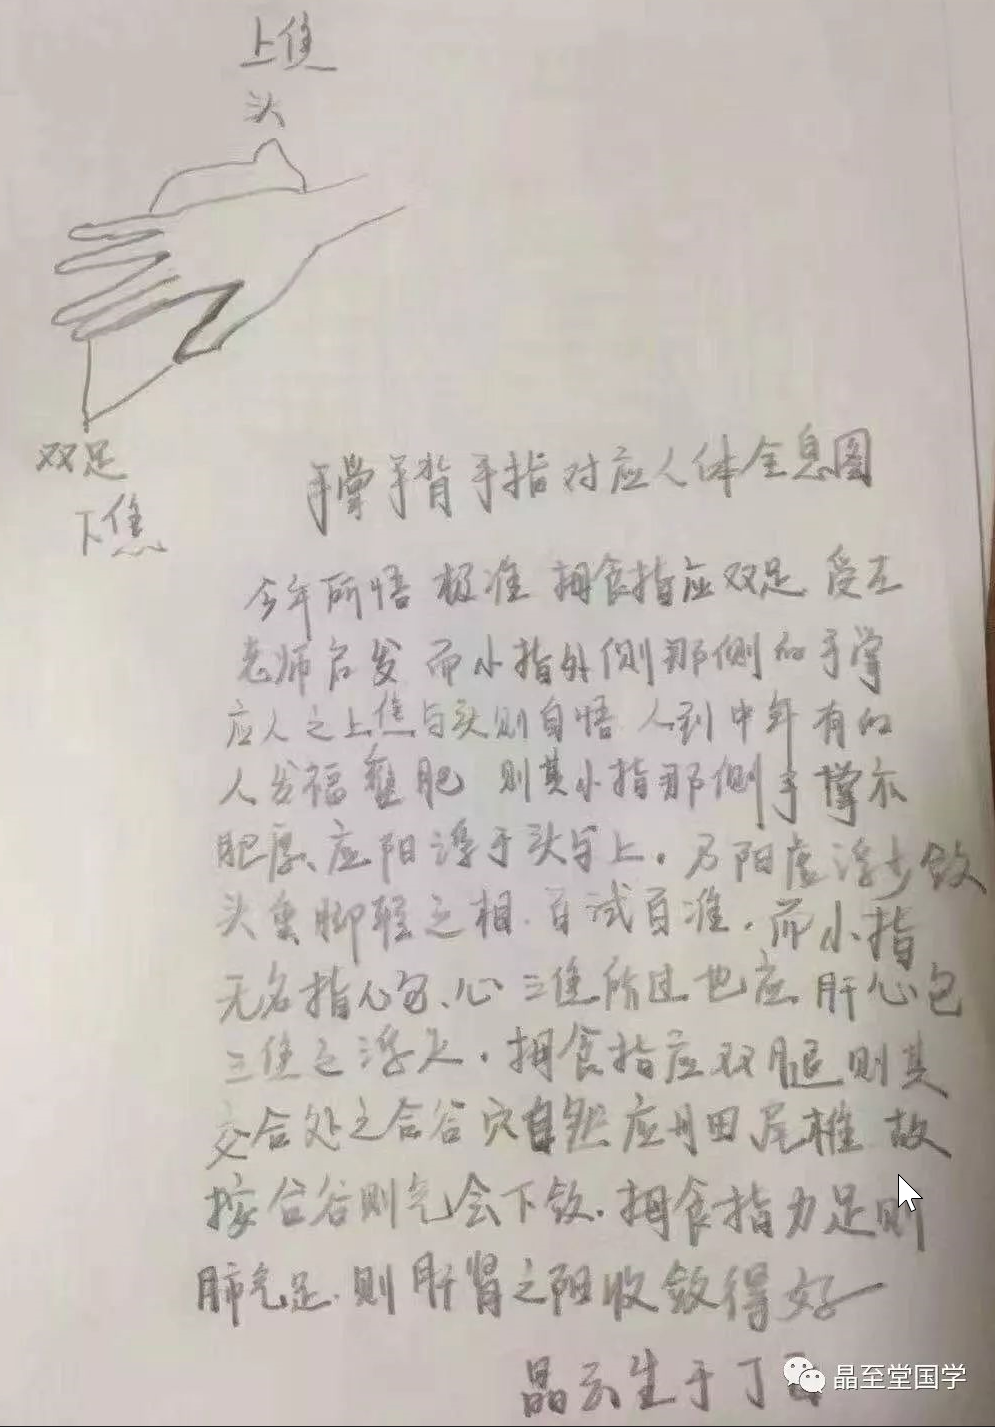 上焦
头
双足
下焦
手掌手背手指对应人体全息图
今年所悟 极准 拇食指应双足 受左
老师启发 而小指外侧那侧的手掌
应人之上焦与头则自悟 人到中年有的
人发福 肥 则其小指那侧手掌亦
肥厚、应阳浮于头与上。乃阳虚浮少敛
头重脚轻之相.百试百准.而小指
无名指心包、心 三焦所过 也应 肝心包
三焦之浮火.拇食指应双腿 则其
交合处之合谷穴自然应丹田尾椎 故
按合谷则气会下敛.拇食指力足则
肺气足.则肝肾之阳收敛得好
晶云生于丁
晶至堂国学